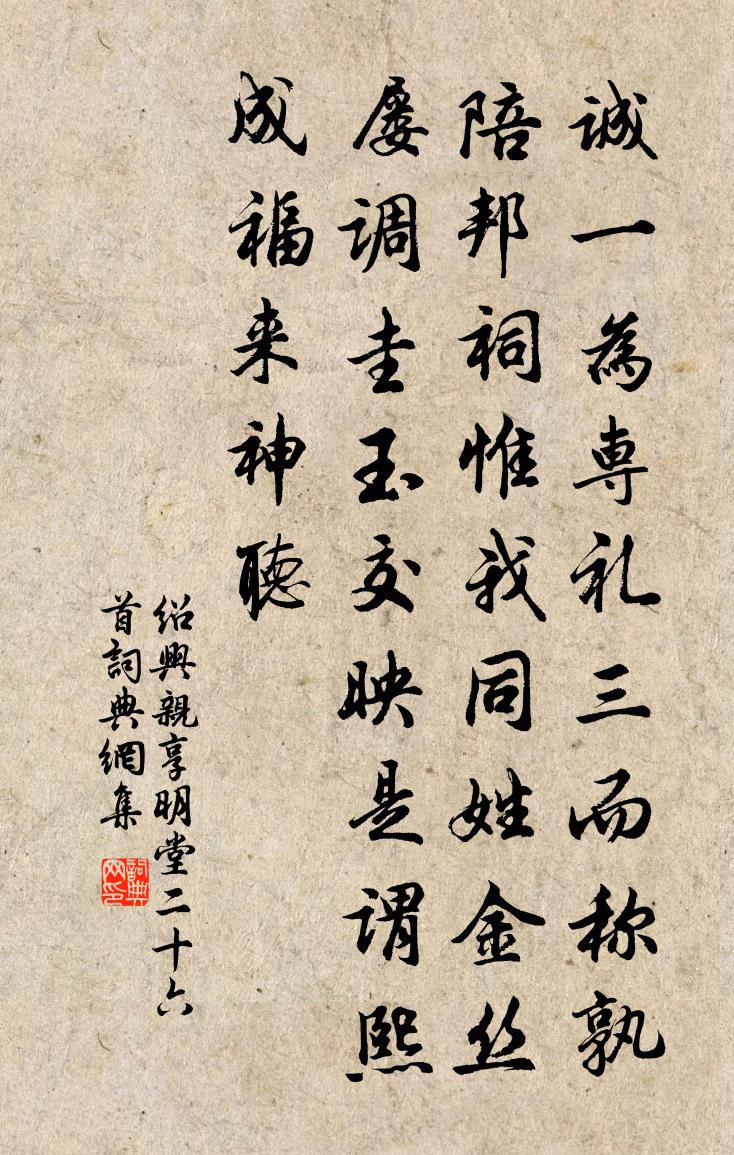 诚一为専礼三而称孰
陪邦祠惟我同姓金丝
屡调圭玉交映是谓熙
成福来神聴
绍興親享明堂二十六
首詞典網集
詞典网印